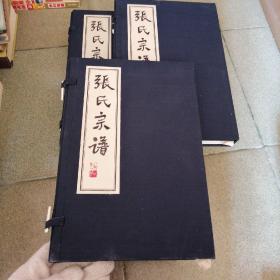 張氏宗譜
張氏宗譜
張氏宗譜